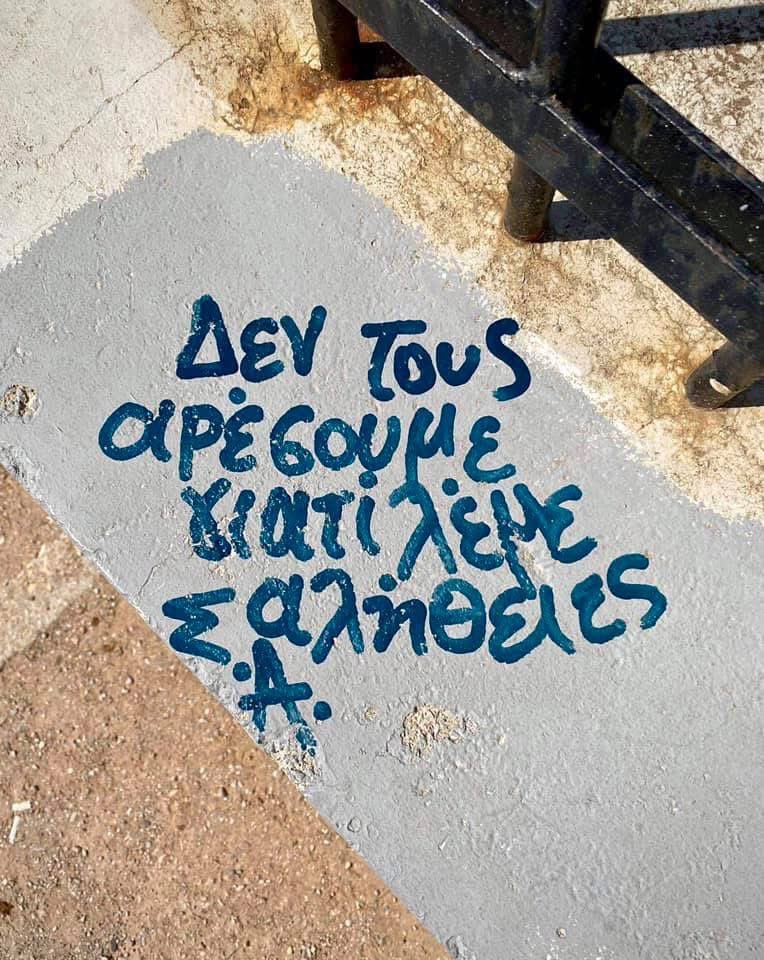 Δεν τους
αρέσουμε
γιατί λέμε
αλήθειες
Σ.Α.